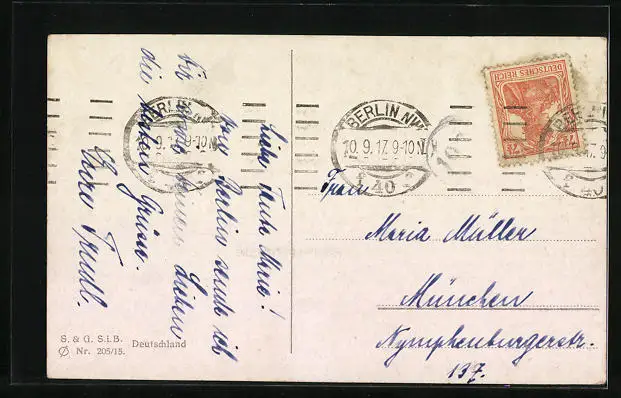 Liebe Tante Marie!
von Berlin sende ich
Dir
die lieben Grüsse.
Eure Trudl.
S. & G. S. i. B.
Nr. 205/15. Deutschland
BERLIN NW
10.9.17. 9-10N
40
BERLIN NW
10.9.17. 9-10N
* 40
DEUTSCHES REICH
7½
BERLIN
Frau
Maria Müller
München
Nymphenburgerstr.
137.